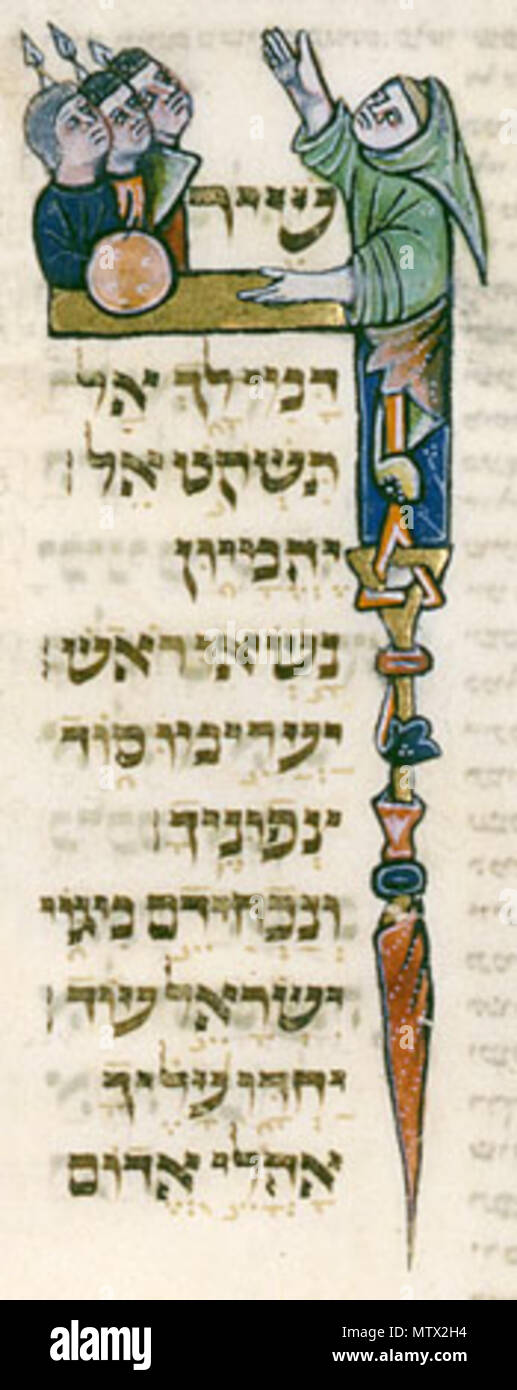 שיר
דמי לך אל
תשקט אל׃
יהמיון
נשאו ראש׃
יערימו סוד
צפוניך׃
ונכחידם מיגוי
ישראל עוד׃
יחדו עליך
אהלי אדום
alamy
Image ID: MTX2H4
www.alamy.com